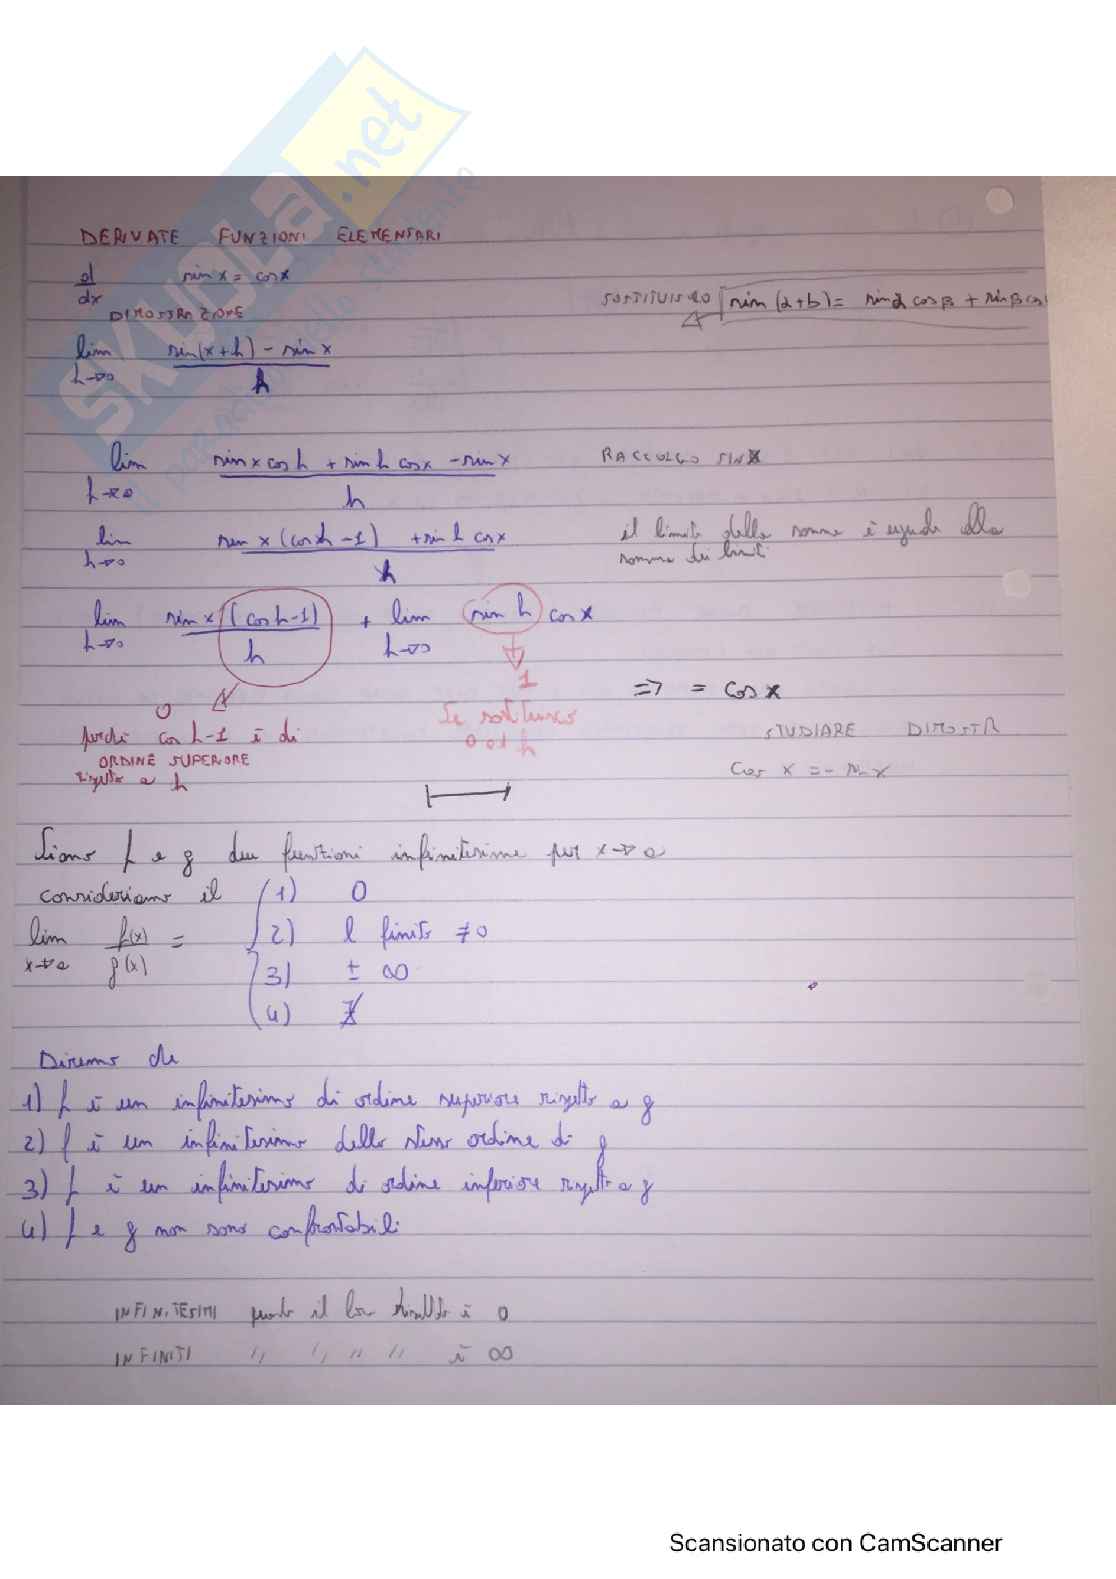 SKUOLA.net
DERIVATE FUNZIONI ELEMENTARI
d/dx sin x = cos x
DIMOSTRAZIONE
SOSTITUISCO sin (α+b) = sin α cos β + sin β cos
lim h→0 sin(x+h) - sin x / h
lim h→0 sin x cos h + sin h cos x - sin x / h
RACCOLGO SIN X
lim h→0 sen x (cos h - 1) + sin h cos x / h
il limite della somma è uguale alla
somma dei limiti
lim h→0 sin x (cos h-1) / h + lim h→0 sin h cos x
1
⇒ = cos x
0
perché cos h-1 è di
ORDINE SUPERIORE
rispetto a h
Se sostituisco
0.01 h
STUDIARE DIMOSTR
Cos x = - sin x
Siano f e g due funzioni infinitesime per x→a
consideriamo il
lim x→a f(x) / g(x) =
1) 0
2) l finito ≠ 0
3) ± ∞
4) ∄
Diremo che
1) f è un infinitesimo di ordine superiore rispetto a g
2) f è un infinitesimo dello stesso ordine di g
3) f è un infinitesimo di ordine inferiore rispetto a g
4) f e g non sono confrontabili
INFINITESIMI quando il loro risultato è 0
INFINITI " " " " è ∞
Scansionato con CamScanner